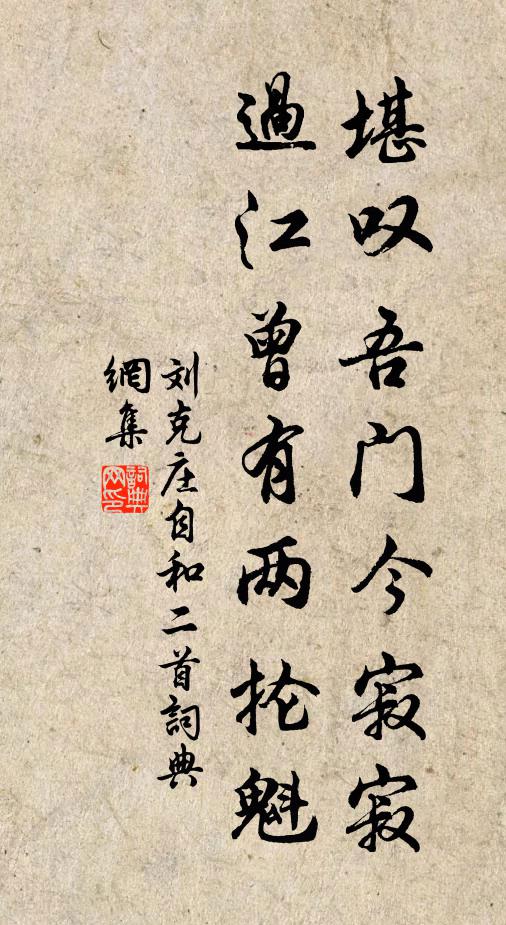 堪叹吾门今寂寂
过江曾有两抡魁
刘克庄自和二首词典
網集
詞典網印